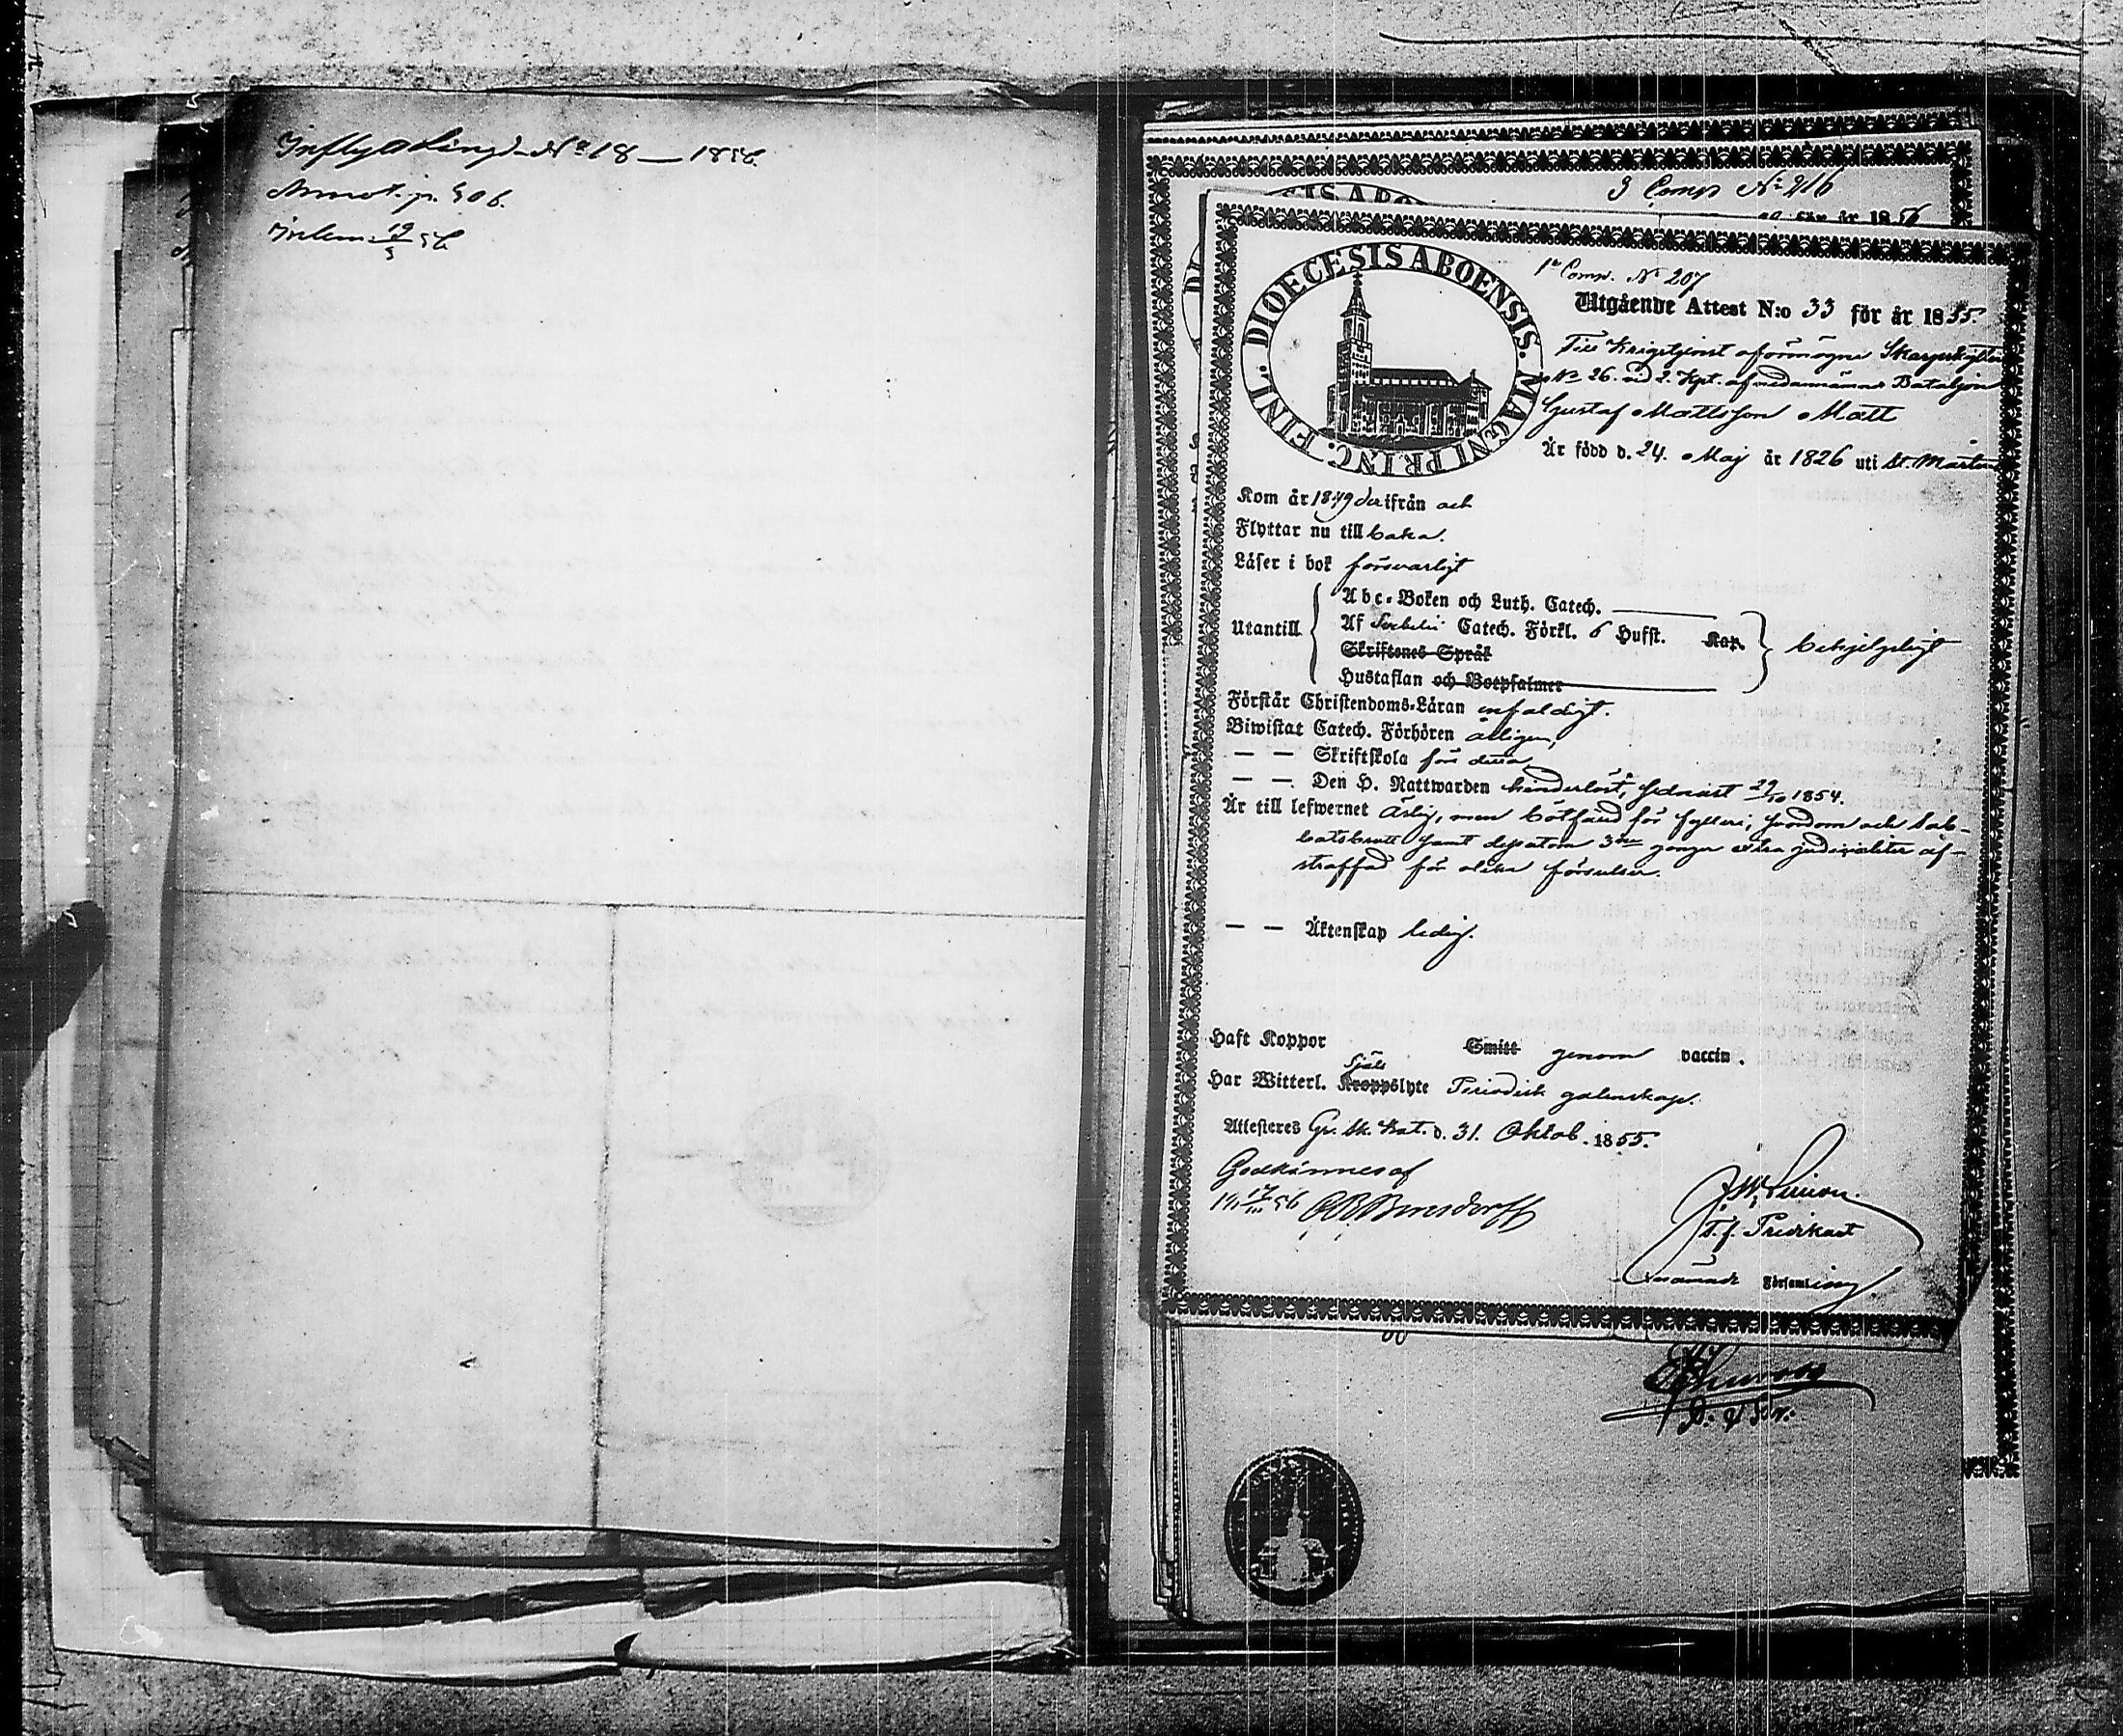 Inflyttnings N:o 18 — 1856
Annot. p. 306.
Inlem. 19/3 56
3 Comp N:o 216
för år 1856
1:a Comp. N:o 207
DIOECESIS ABOENSIS. MAGNI PRINC. FINL.
Utgående Attest N:o 33 för år 1855.
Till Krigstjenst oförmögne Skarpskytten
N:o 26. vid 2. Kpt. af Bataljon
Gustaf Mattsson Matt
Är född d. 24. Maj år 1826 uti St. Mårtens
Kom år 1849 derifrån och
Flyttar nu till baka.
Läser i bok försvarligt
Utantill
Abc-Boken och Luth. Catech.
Af Svebelii Catech. Förkl. 6 Hufst. Kap.
Skriftenes Språk
Hustaflan och Botpsalmer
behjelpligt
Förstår Christendoms-Läran enfaldigt.
Biwistat Catech. Förhören årligen,
— — Skriftskola för detta
— — Den H. Nattwarden hinderlöst, sednast 29/10 1854.
Är till lefwernet ärlig, men bötfäld för fylleri, svordom och sab-
batsbrott samt dessutom 3ne gånger extra judicialiter af-
straffad för olika förseelser.
— — Äktenskap ledig.
Haft Koppor Smitt genom vaccin.
Har Witterl. Kroppslyte Själs Periodisk galenskap.
Attesteres Gr. Sk. Bat. d. 31. Oktob. 1855.
Godkännes af
17/III 56
T. f. Predikant
Församling.